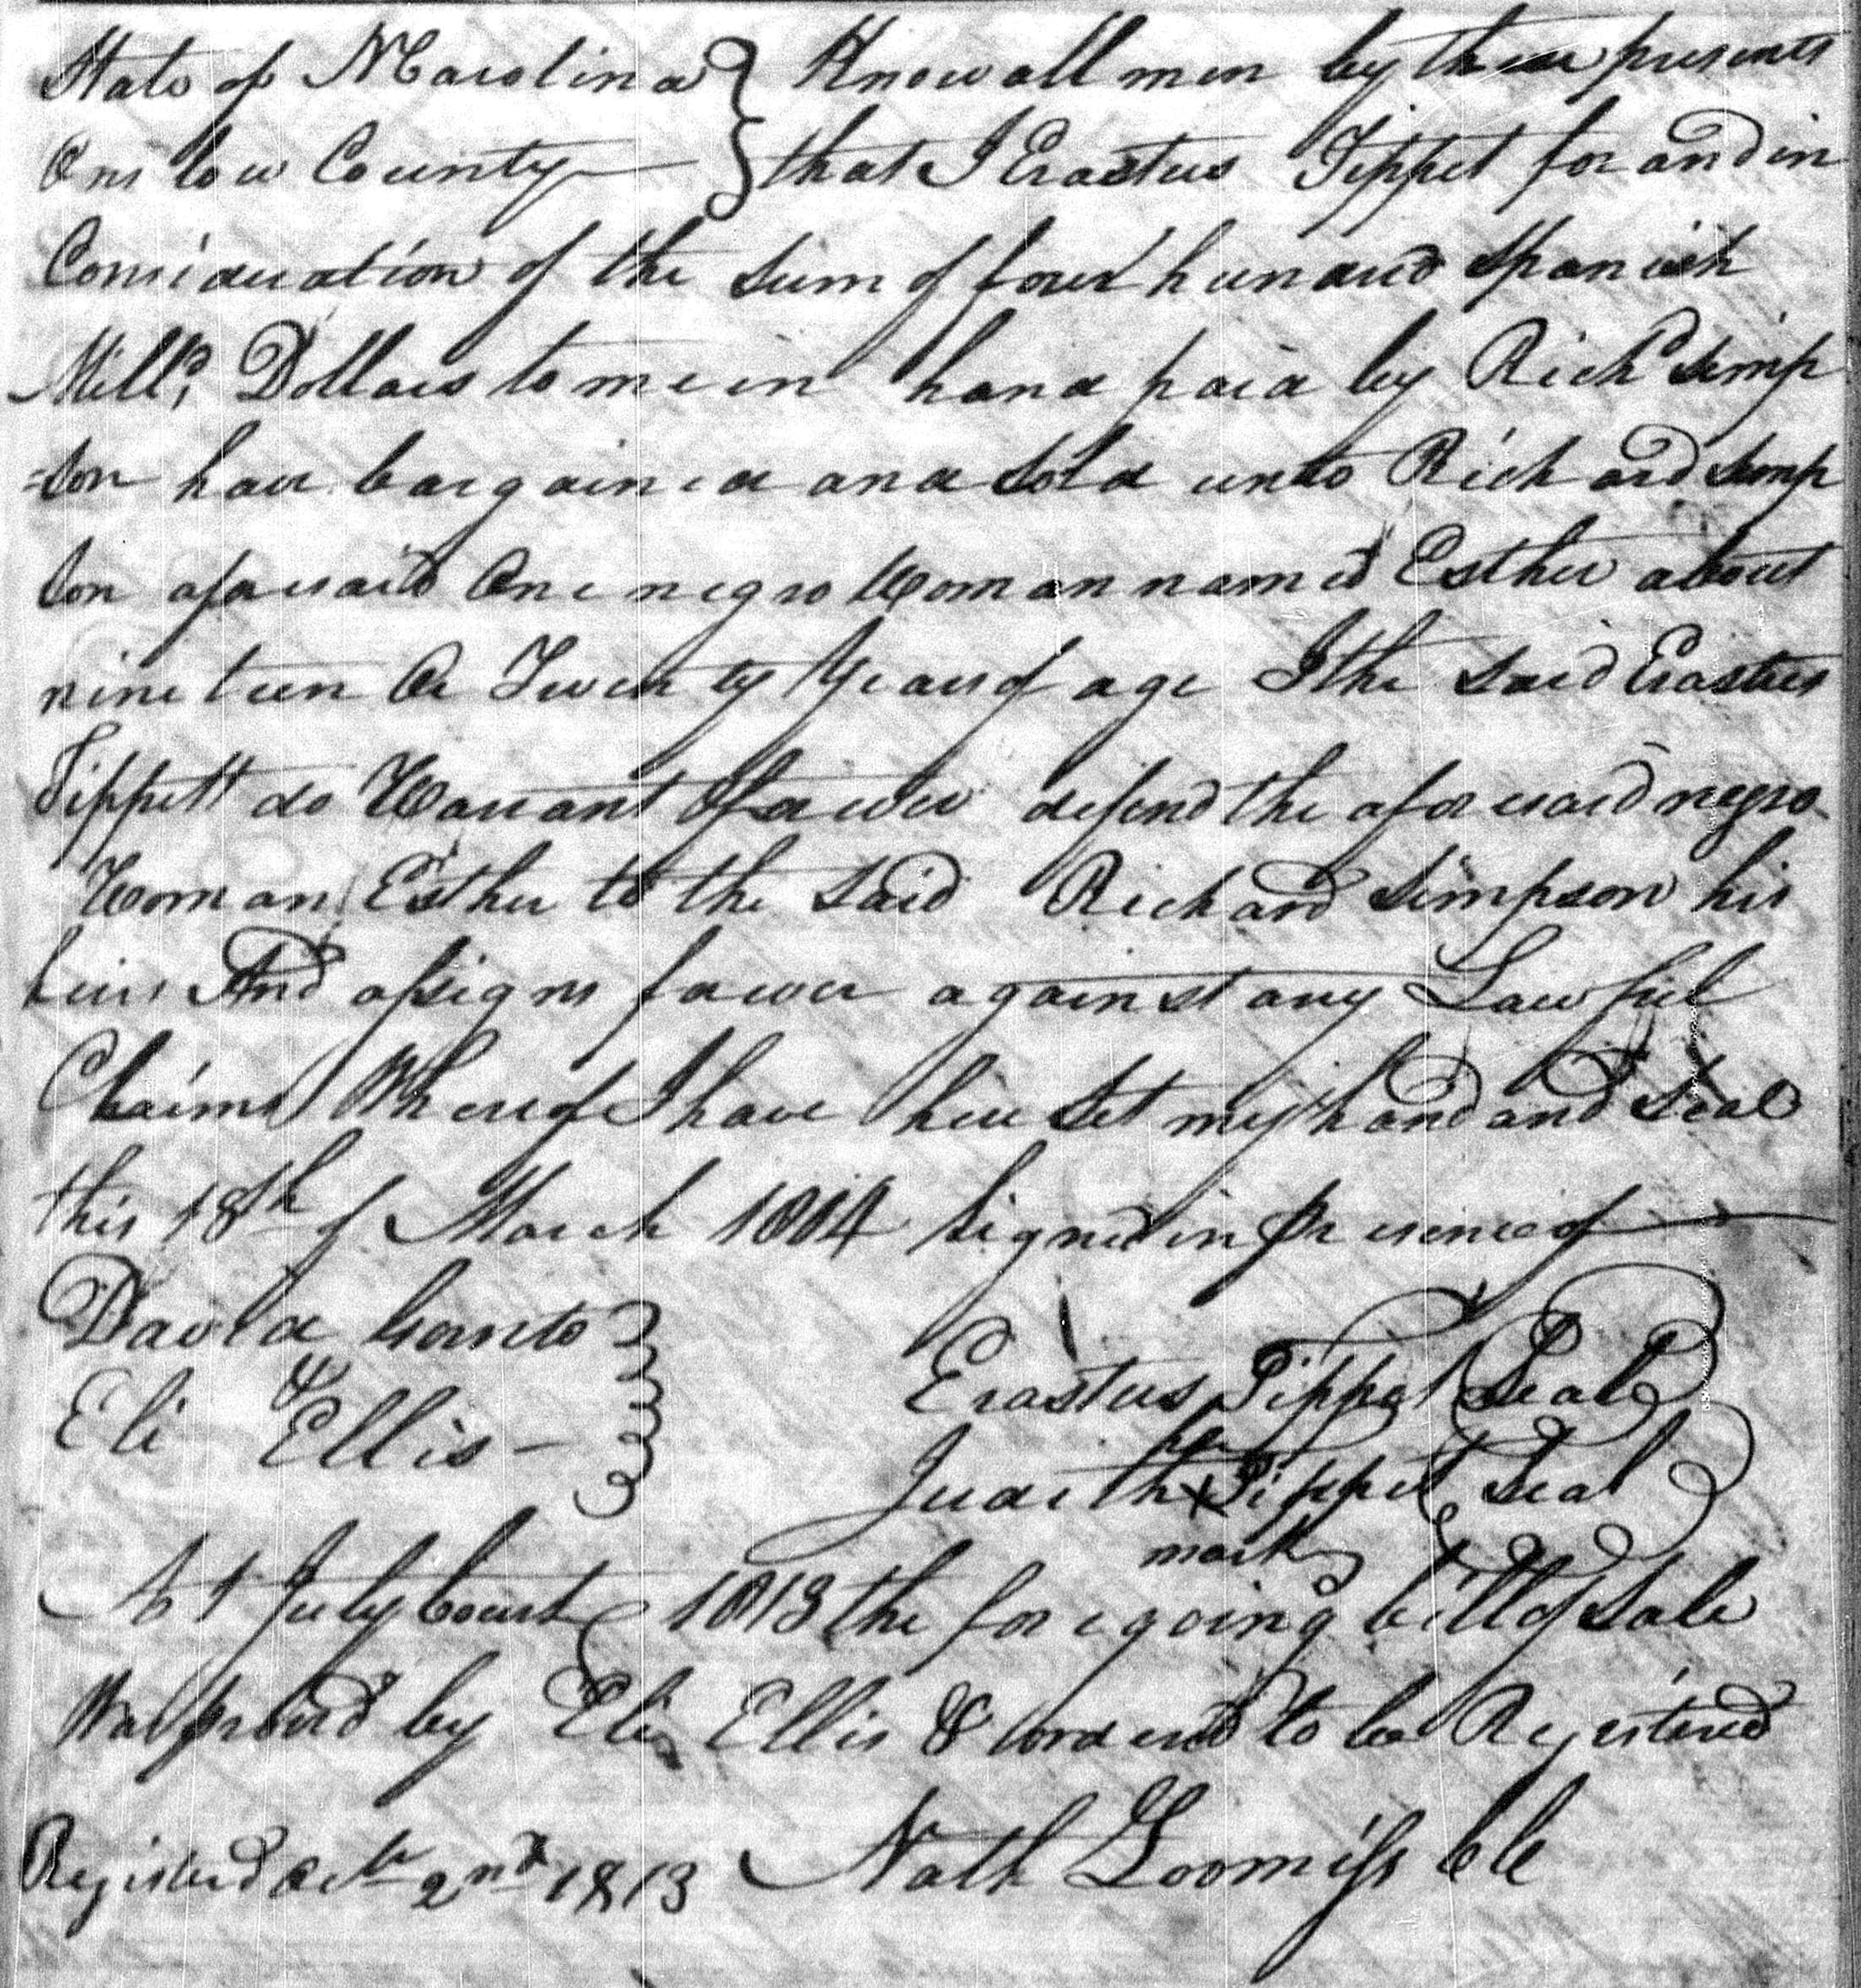 State of N Carolina } Know all men by these presents
Onslow County } that I Erastus Tippet for and in
Consideration of the sum of four hundred Spanish
Milld. Dollars to me in hand paid by Richd Simp
=son have bargained and sold unto Richard Simp
son aforesaid One negro Woman named Esther about
nineteen Or Twenty Years of age I the said Erastus
Tippett do Warrant & forever defend the aforesaid negro
Woman Esther to the said Richard Simpson his
heirs And assigns forever against any Lawful
Claims Whereof I have here set my hand and Seal
this 18th of March 1804 Signed in Presence of
David
Erastus Tippet Seal
Eli Ellis
her
Judith X Tippet Seal
mark
At July Court 1813 the foregoing bill of Sale
Was proved by Eli Ellis & ordered to be Registered
Registered Octr 2nd 1813 Nath Loomiss Clk